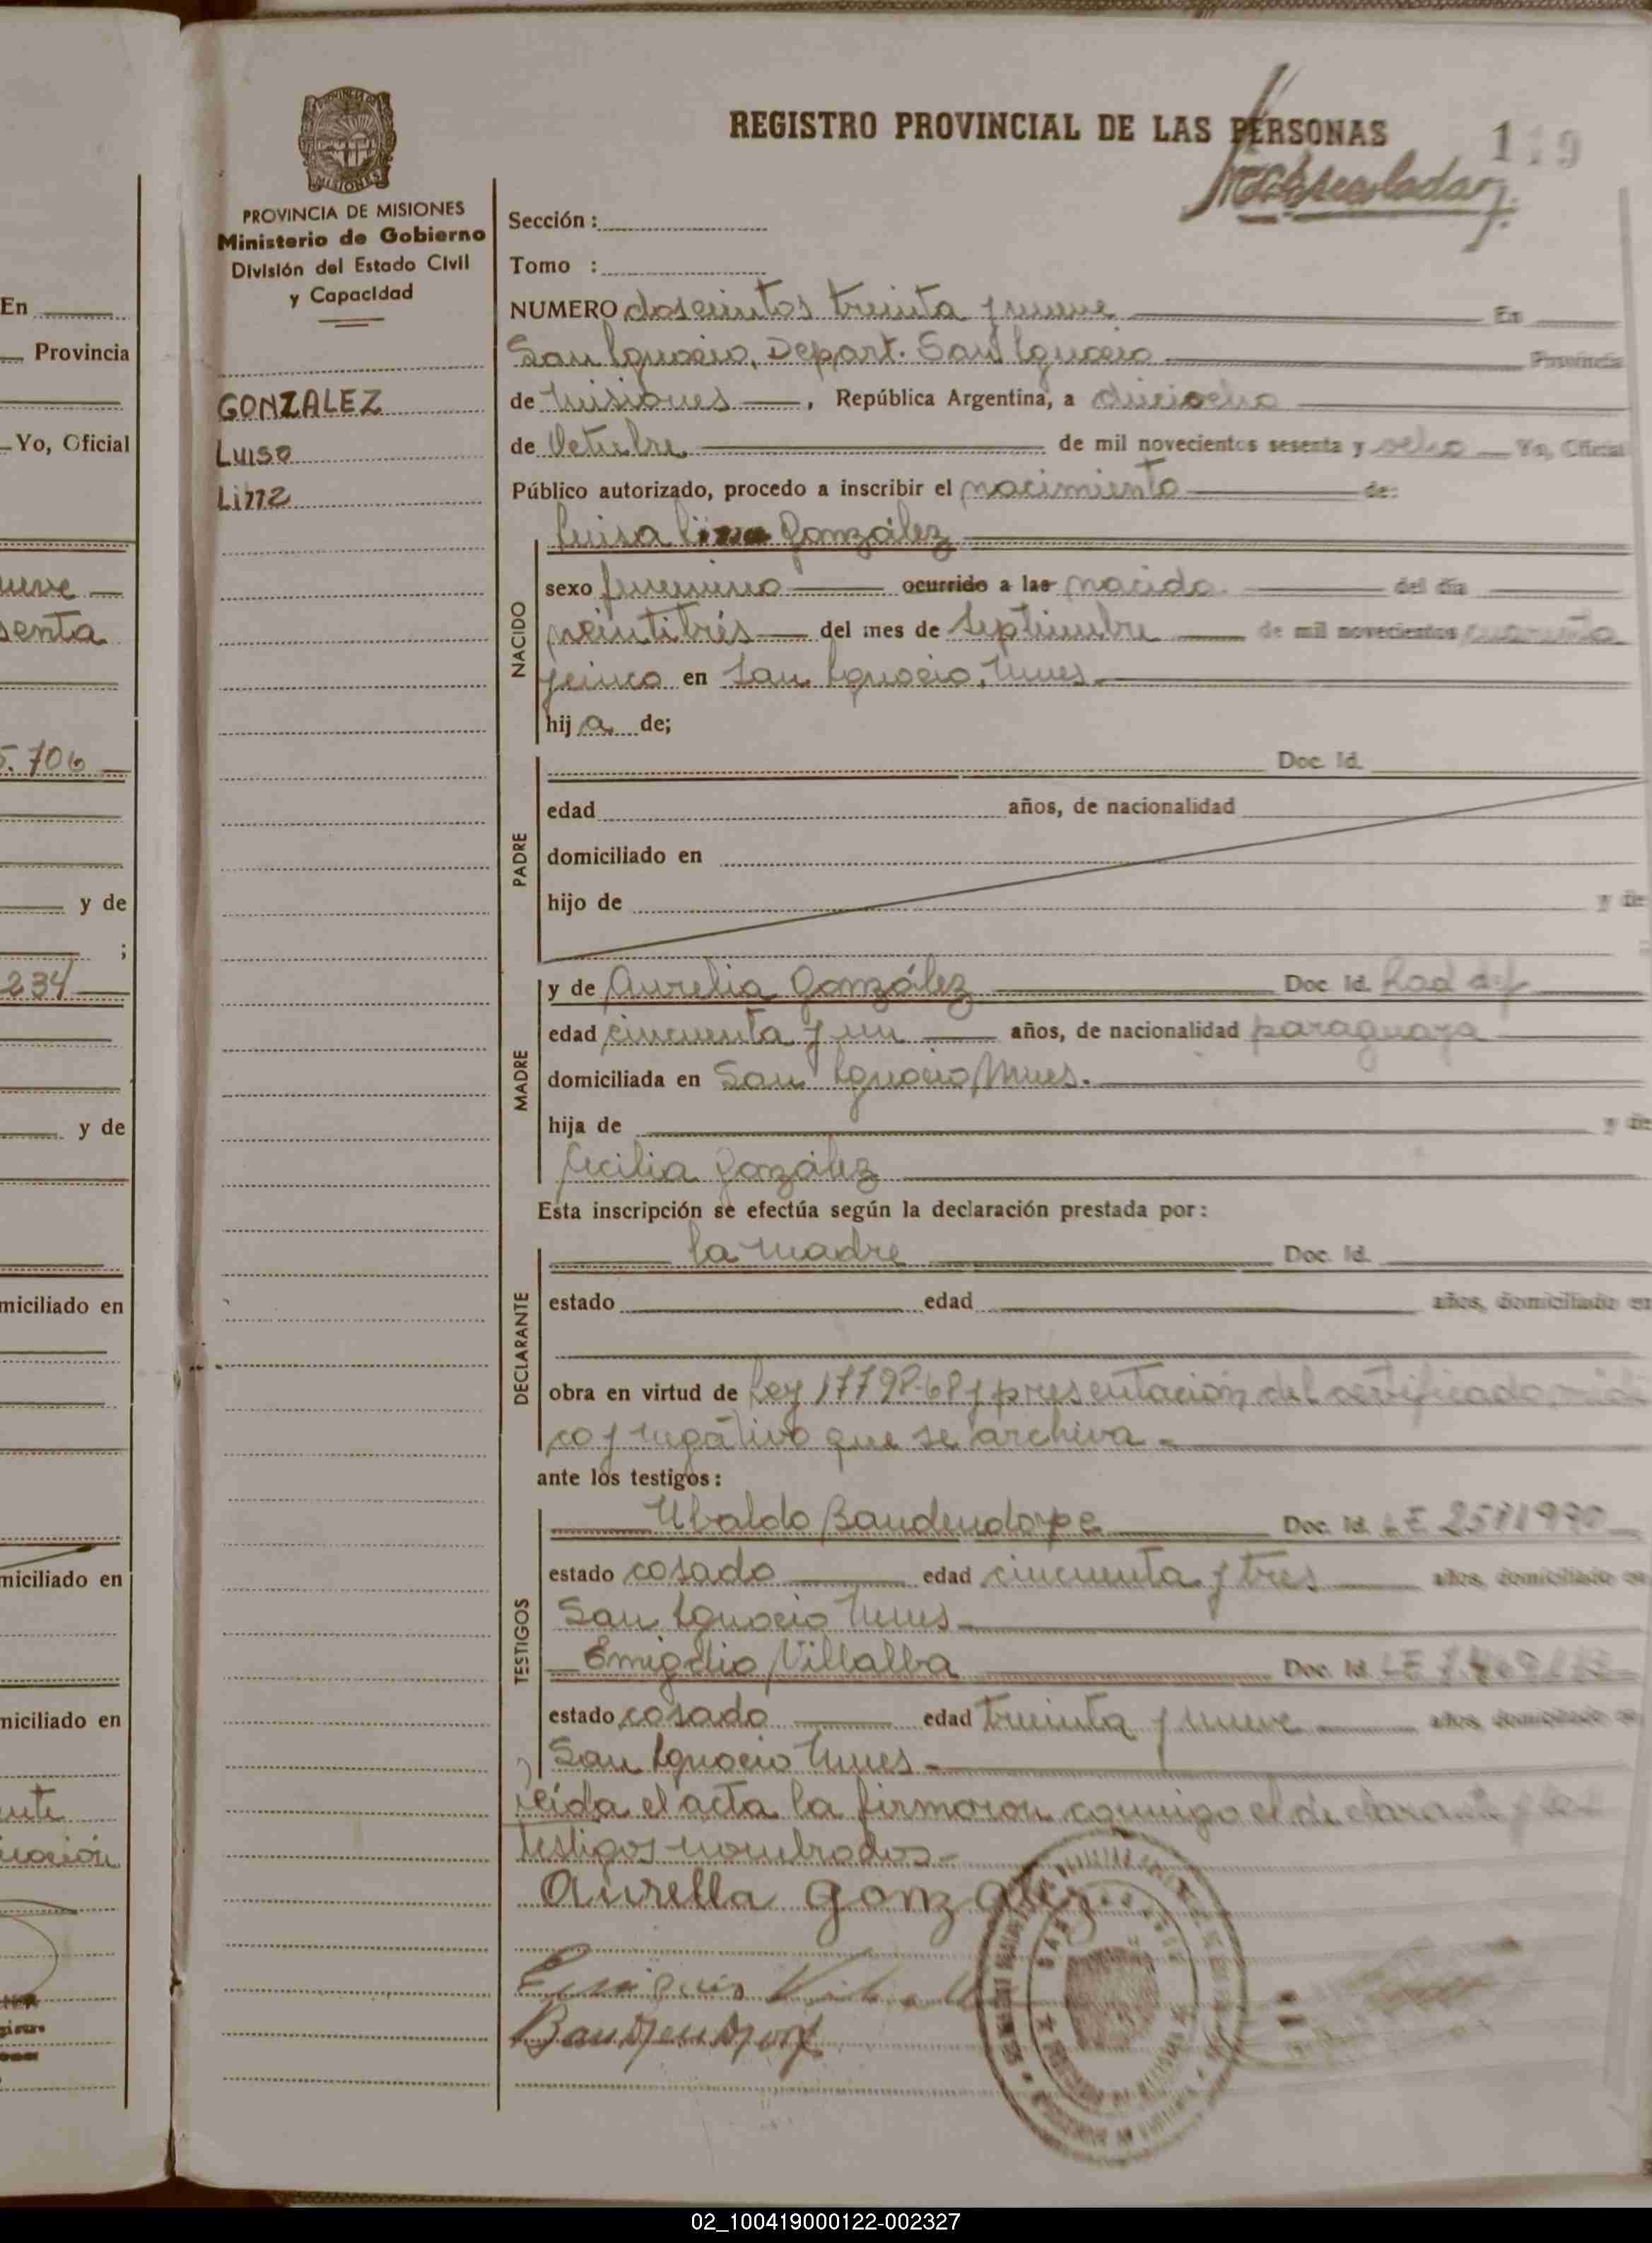 En
Provincia
Yo, Oficial
ueve
senta
5.706
y de
;
234
y de
miciliado en
miciliado en
miciliado en
ente
PROVINCIA DE MISIONES
Ministerio de Gobierno
División del Estado Civil
y Capacidad
GONZALEZ
Luisa
Lina
REGISTRO PROVINCIAL DE LAS PERSONAS
Sección :
Tomo :
NUMERO doscientos treinta y nueve En
San Ignacio, Depart. San Ignacio Provincia
de Misiones , República Argentina, a dieciocho
de Octubre de mil novecientos sesenta y ocho Yo, Oficial
Público autorizado, procedo a inscribir el nacimiento de:
NACIDO
Luisa Lina González
sexo femenino ocurrido a las nacida del día
veintitrés del mes de Septiembre de mil novecientos cuarenta
y cinco en San Ignacio, Mnes.
hija de;
PADRE
Doc. Id.
edad años, de nacionalidad
domiciliado en
hijo de y de
MADRE
y de Aurelia González Doc. Id.
edad cincuenta y un años, de nacionalidad paraguaya
domiciliada en San Ignacio Mnes.
hija de y de
Cecilia González
Esta inscripción se efectúa según la declaración prestada por:
DECLARANTE
la madre Doc. Id.
estado edad años, domiciliado en
obra en virtud de Ley 17798-68 y presentación del certificado médi
co y negativo que se archiva -
ante los testigos:
TESTIGOS
Ubaldo Baudendorpe Doc. Id. LE 2581990
estado casado edad cincuenta y tres años, domiciliado en
San Ignacio Mnes -
Emigdio Villalba Doc. Id. LE
estado casado edad treinta y nueve años, domiciliado en
San Ignacio Mnes -
Leída el acta la firmaron conmigo el declarante y los
testigos nombrados -
Aurella gonzalez
02_100419000122-002327